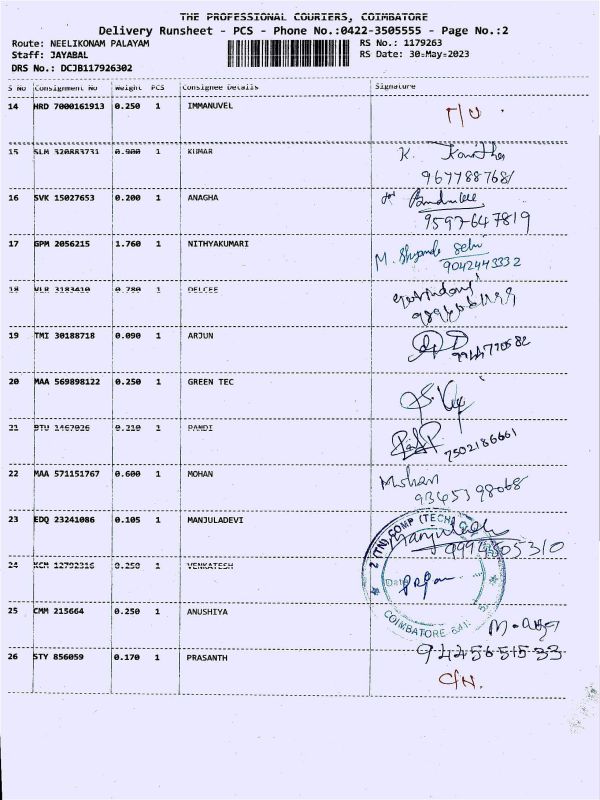 THE PROFESSIONAL COURIERS, COIMBATORE
Delivery Runsheet - PCS - Phone No.:0422-3505555 - Page No.:2
Route: NEELIKONAM PALAYAM
RS No.: 1179263
Staff: JAYABAL
RS Date: 30-May-2023
DRS No.: DCJB117926302
S No Consignment No Weight PCS Consignee Details Signature
14 HRD 7000161913 0.250 1 IMMANUVEL
15 SLM 320883731 0.900 1 KUMAR
K.
9677887681
16 SVK 15027653 0.200 1 ANAGHA
9597647819
17 GPM 2056215 1.760 1 NITHYAKUMARI
M.
9042443332
18 VLR 3183410 0.780 1 DELCEE
19 TMI 30188718 0.090 1 ARJUN
20 MAA 569898122 0.250 1 GREEN TEC
21 BTU 1467026 0.210 1 PANDI
7502186661
22 MAA 571151767 0.600 1 MOHAN
Mohan
9345398068
23 EDQ 23241086 0.105 1 MANJULADEVI
2 (TN) COMP (TECH)
24 KCM 12792316 0.250 1 VENKATESH
25 CMM 215664 0.250 1 ANUSHIYA
COIMBATORE
26 STY 856059 0.170 1 PRASANTH
9445651533
C/N.